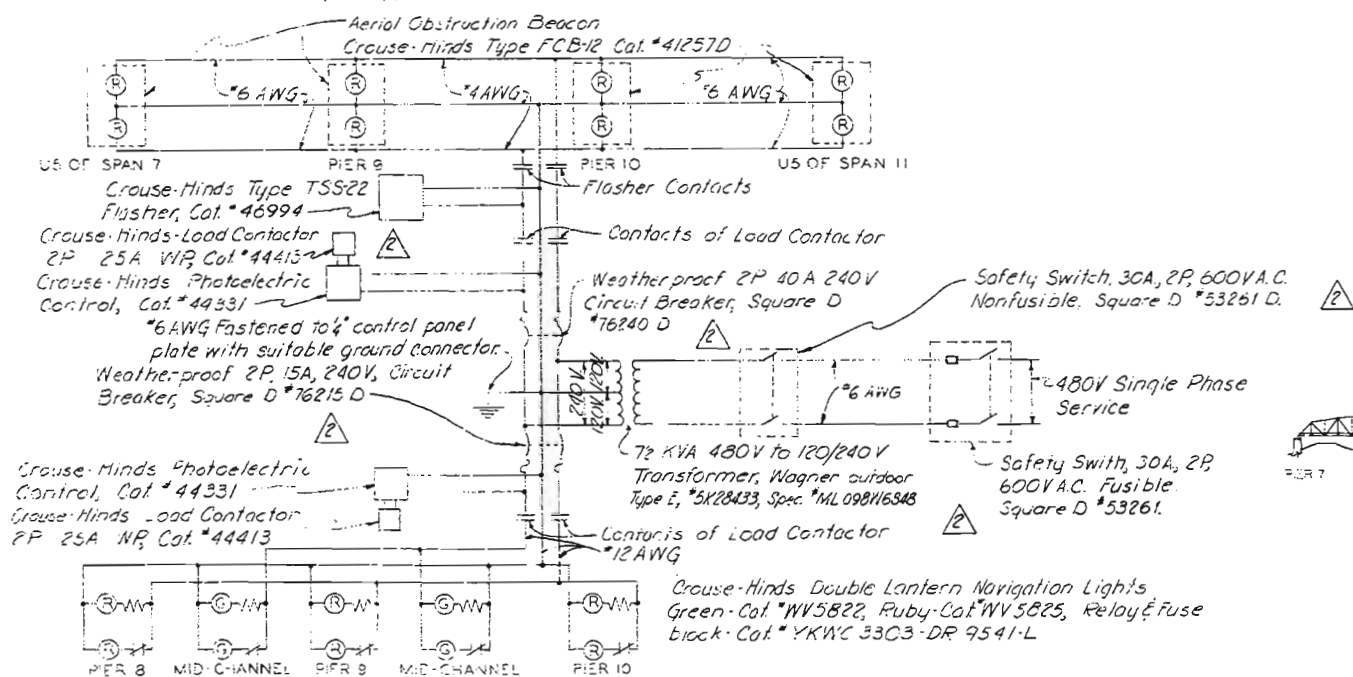 Aerial Obstruction Beacon
Crouse-Hinds Type FCB-12 Cat. #41257D
R
R
R
R
#6 AWG
#4 AWG
#6 AWG
R
R
R
R
U5 OF SPAN 7
PIER 9
PIER 10
U5 OF SPAN 11
Crouse-Hinds Type TSS-22
Flasher, Cat. #46994
Flasher Contacts
2
Crouse-Hinds-Load Contactor
2P 25A WP, Cat. #44413
Contacts of Load Contactor
Crouse-Hinds Photoelectric
Control, Cat. #44331
Weatherproof 2P 40A 240V
Circuit Breaker, Square D
#76240 D
2
Safety Switch, 30A, 2P, 600V A.C.
Nonfusible, Square D #53261 D.
2
#6 AWG Fastened to ¼" control panel
plate with suitable ground connector.
Weatherproof 2P, 15A, 240V, Circuit
Breaker, Square D #76215 D
2
240V
120V
120V
#6 AWG
480V Single Phase
Service
7½ KVA 480V to 120/240V
Transformer, Wagner outdoor
Type E, #5X28433, Spec. #ML098W6848
Safety Swith, 30A, 2P,
600V A.C. Fusible.
Square D #53261.
2
PIER 7
Crouse-Hinds Photoelectric
Control, Cat. #44331
Crouse-Hinds Load Contactor
2P 25A WP, Cat. #44413
Contacts of Load Contactor
#12 AWG
Crouse-Hinds Double Lantern Navigation Lights
Green-Cat. #WV5822, Ruby-Cat. #WV5825, Relay & Fuse
block-Cat. #YKWC 3303-DR 9541-L
R
G
R
G
R
R
G
R
G
R
PIER 8
MID-CHANNEL
PIER 9
MID-CHANNEL
PIER 10